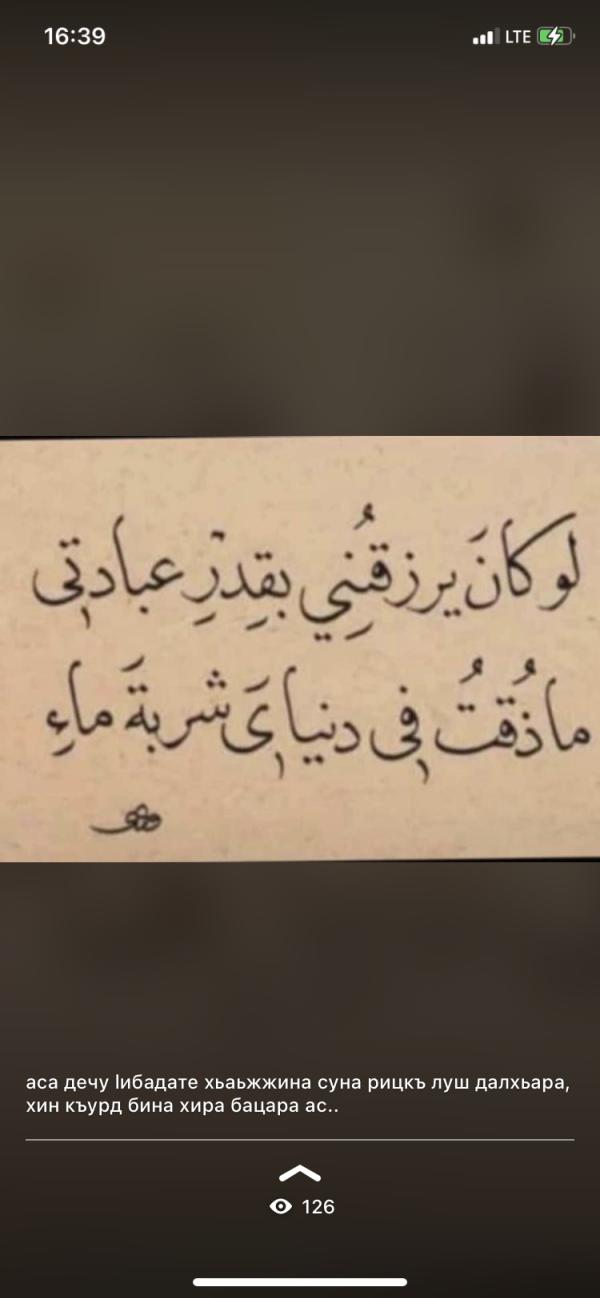 16:39
LTE
لو كانَ يرزقُنِي بقِدرِ عبادتي
ما ذُقتُ في دنيايَ شربةَ ماءِ
аса дечу lибадате хьаьжжина суна рицкъ луш далхьара,
хин къурд бина хира бацара ас..
126